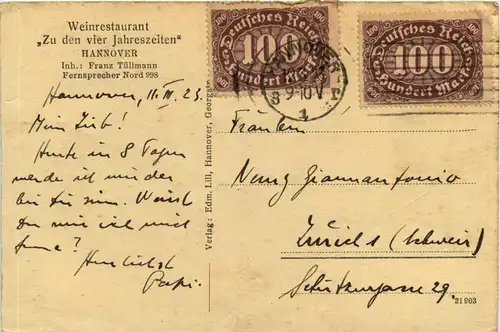 Weinrestaurant
„Zu den vier Jahreszeiten"
HANNOVER
Inh.: Franz Tüllmann
Fernsprecher Nord 998
Deutsches Reich
100
Hundert Mark
Deutsches Reich
100
Hundert Mark
HANNOVER
9-10 V
1
Hannover, 11. III. 23.
Mein Lieb!
Heute in 8 Tagen
werde ich wieder
bei Dir sein. Wirst
Du mir
Herzlichst
Papi.
Verlag: Edm. Lill, Hannover, Georgstr.
Fräulein
Giannantonio
Zürich (Schweiz)
Schützengasse 29.
21903